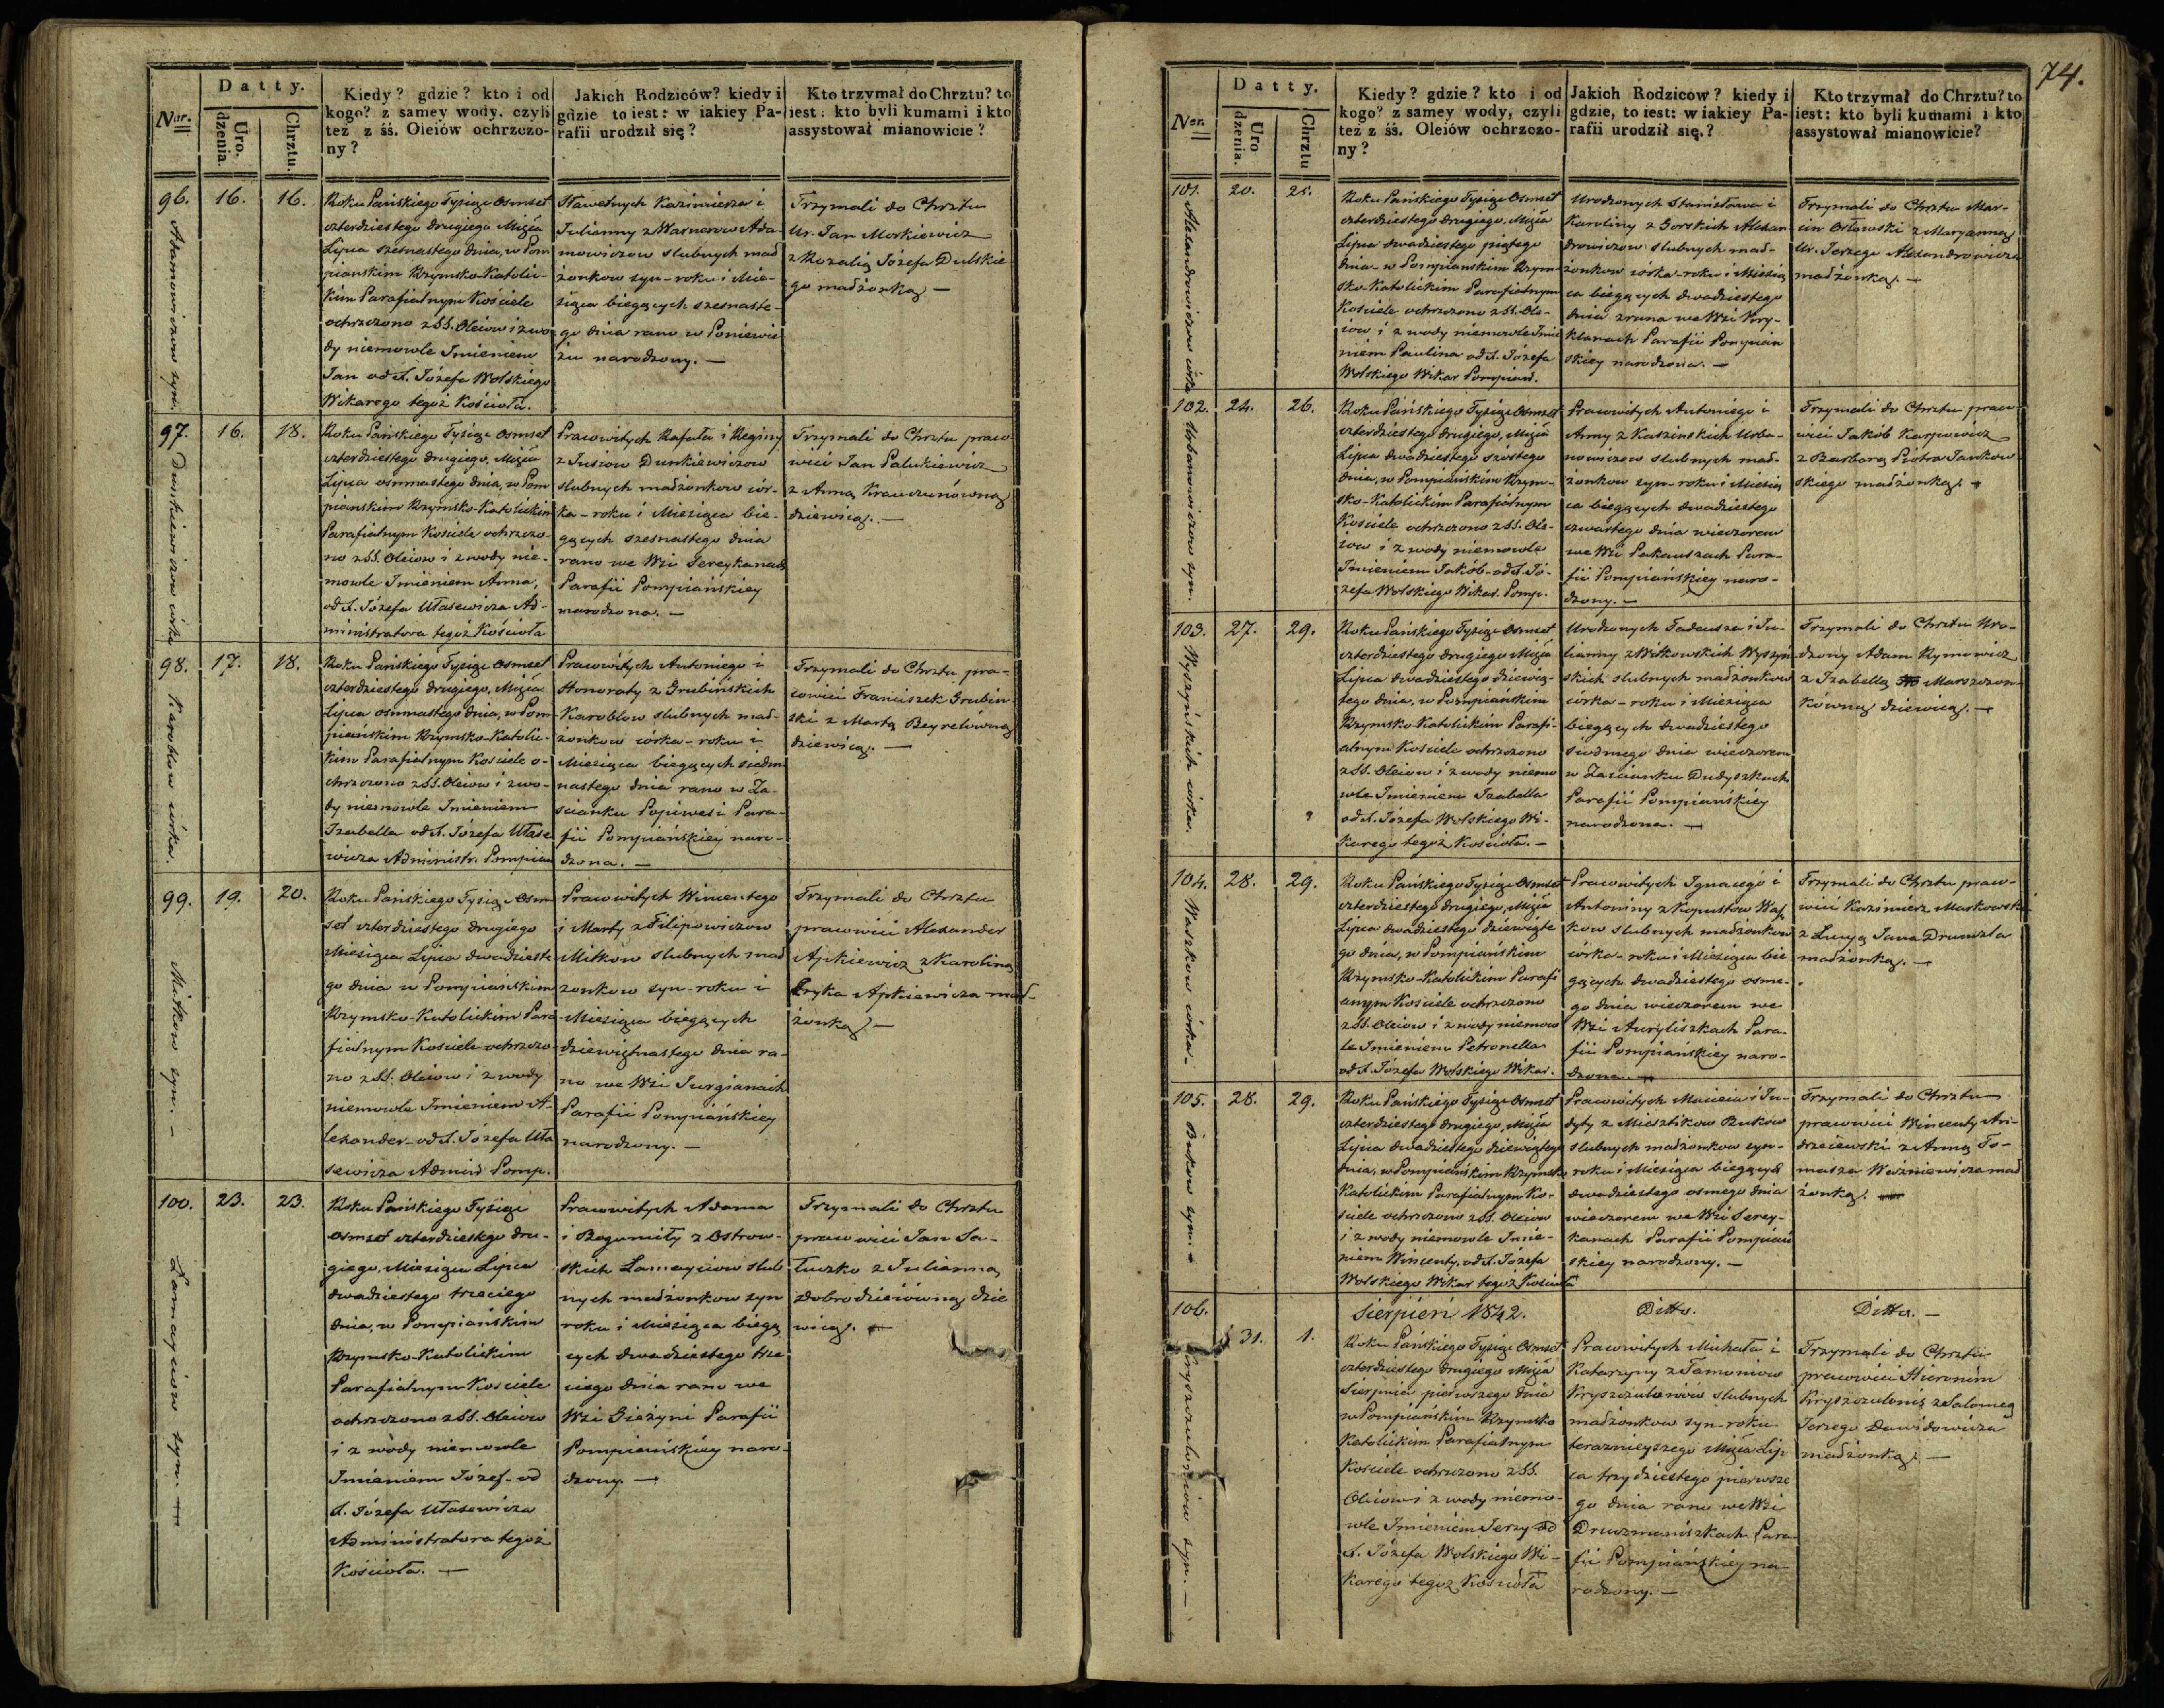 Datty.
Nur.
Uro.
dzenia.
Chrztu.
Kiedy? gdzie? kto i od
kogo? z samey wody, czyli
też z śś. Oleiów ochrzczo-
ny?
Jakich Rodziców? kiedy i
gdzie to iest: w iakiey Pa-
rafii urodził się?
Kto trzymał do Chrztu? to
iest: kto byli kumami i kto
assystował mianowicie?
96.
Adamowiczow syn.
16.
16.
Roku Pańskiego Tysiąc Osmset
czterdziestego drugiego Mięśca
Lipca szesnastego dnia, w Pom
piańskim Rzymsko-Katolic-
kim Parafialnym Kościele
ochrzczono z SS. Oleiow i z wo
dy niemowle Imieniem
Jan od X. Józefa Wolskiego
Wikarego tegoż Kościoła.
Sławetnych Kazimierza i
Julianny z Warnerow Ada-
mowiczow slubnych mał
żonkow syn - roku i Mie-
siąca biegących szesnaste-
go dnia rano w Poniewie
żu narodzony. —
Trzymali do Chrztu
Ur. Jan Morkiewicz
z Rozalią Jozefa Dulskie-
go małżonką —
97.
Dunkiewiczow córka
16.
18.
Roku Pańskiego Tysiąc Osmset
czterdziestego drugiego, Mięśca
Lipca osmnastego dnia, w Pom
piańskim Rzymsko-Katolickim
Parafialnym Kościele ochrzczo-
no z SS. Oleiow i z wody nie-
mowle Imieniem Anna,
od X. Józefa Ułasewicza Ad-
ministratora tegoż Kościoła
Prawowitych Rafała i Reginy
z Jusiow Dunkiewiczow
slubnych małżonkow cór-
ka - roku i Miesiąca bie-
gących szesnastego dnia
rano we Wsi Sereykanach
Parafii Pompiańskiey
narodzona. —
Trzymali do Chrztu prawo
wici Jan Palukiewicz
z Anną Krawczunówną
dziewicą. —
98.
Karoblow córka.
17.
18.
Roku Pańskiego Tysiąc Osmset
czterdziestego drugiego, Mięśca
Lipca osmnastego dnia, w Pom-
piańskim Rzymsko-Katolic-
kim Parafialnym Kościele o-
chrzczono z SS. Oleiow i z wo-
dy niemowle Imieniem
Izabella od X. Józefa Ułase
wicza Administr. Pompian
Prawowitych Antoniego i
Honoraty z Grubińskich
Karoblow slubnych mał-
żonkow córka - roku i
Miesiąca biegących siedm
nastego dnia rano w Za-
scianku Popiewesi Para-
fii Pompiańskiey naro-
dzona. —
Trzymali do Chrztu pra-
wowici Franciszek Grubin
ski z Martą Beyretówną
dziewicą. —
99.
Mitkow syn. —
19.
20.
Roku Pańskiego Tysiąc Osm
set czterdziestego drugiego
Miesiąca Lipca dwudzieste
go dnia w Pompiańskim
Rzymsko-Katolickim Para
fialnym Kościele ochrzczo-
no z SS. Oleiow i z wody
niemowle Imieniem A-
lexander - od X. Józefa Uła
sewicza Admin Pomp.
Prawowitych Wincentego
i Marty z Filipowiczow
Mitkow slubnych mał
żonkow syn - roku i
Miesiąca biegących
dziewiętnastego dnia ra-
no we Wsi Jurgianach
Parafii Pompiańskiey
narodzony. —
Trzymali do Chrztu
prawowici Alexander
Apkiewicz z Karoliną
Eryka Apkiewicza mał-
żonką —
100.
Łamayciow syn. —
23.
23.
Roku Pańskiego Tysiąc
Osmset czterdziestego dru-
giego, Miesiąca Lipca
dwadziestego trzeciego
dnia, w Pompiańskim
Rzymsko-Katolickim
Parafialnym Kościele
ochrzczono z SS. Oleiow
i z wody niemowle
Imieniem Józef - od
X. Józefa Ułasewicza
Administratora tegoż
Kościoła. —
Prawowitych Adama
i Bogumiły z Ostrow-
skich Łamayciow slub
nych małżonkow syn
roku i Miesiąca biegą
cych dwadziestego trze
ciego dnia rano we
Wsi Gieżyni Parafii
Pompiańskiey naro-
dzony. —
Trzymali do Chrztu
prawowici Jan Sa-
łuczko z Julianną
Dobrodzieiówną dzie
wicą. —
74.
Datty.
Nur.
Uro
dzenia.
Chrztu
Kiedy? gdzie? kto i od
kogo? z samey wody, czyli
też z śś. Oleiów ochrzczo-
ny?
Jakich Rodziców? kiedy i
gdzie, to iest: w iakiey Pa-
rafii urodził się.?
Kto trzymał do Chrztu? to
iest: kto byli kumami i kto
assystował mianowicie?
101.
Alexandrowiczow córka
20.
25.
Roku Pańskiego Tysiąc Osmset
czterdziestego drugiego, Mięśca
Lipca dwadziestego piątego
dnia w Pompianskim Rzym-
sko-Katolickim Parafialnym
Kościele ochrzczono z SS. Ole-
iow i z wody niemowle Imie
niem Paulina od X. Józefa
Wolskiego Wikar Pompiań.
Urodzonych Stanisława i
Karoliny z Gorskich Alexan
drowiczow slubnych mał-
żonkow córka - roku i Miesią
ca biegących dwadziestego
dnia zrana we Wsi Kry-
klanach Parafii Pompiań
skiey narodzona. —
Trzymali do Chrztu Mar-
cin Orłowski z Maryanną
Ur. Jerzego Alexandrowicza
małżonką. —
102.
Urbanowiczow syn.
24.
26.
Roku Pańskiego Tysiąc Osmset
czterdziestego drugiego, Mięśca
Lipca dwadziestego szostego
dnia, w Pompiańskim Rzym-
sko-Katolickim Parafialnym
Kościele ochrzczono z SS. Ole-
iow i z wody niemowle
Imieniem Jakób - od X. Jó-
zefa Wolskiego Wikar. Pomp.
Prawowitych Antoniego i
Anny z Kaszinskich Urba-
nowiczow slubnych mał-
żonkow syn - roku i Miesią
ca biegących dwadziestego
czwartego dnia wieczorem
we Wsi Pakauszach Para-
fii Pompiańskiey naro-
dzony. —
Trzymali do Chrztu prawo
wici Jakób Karpowicz
z Barbarą Piotra Jankow
skiego małżonką. —
103.
Wyszyńskich córka.
27.
29.
Roku Pańskiego Tysiąc Osmset
czterdziestego drugiego Mięśca
Lipca dwadziestego dziewią-
tego dnia, w Pompiańskim
Rzymsko-Katolickim Parafi-
alnym Kościele ochrzczono
z SS. Oleiow i z wody niemo
wle Imieniem Izabella
od X. Józefa Wolskiego Wi-
karego tegoż Kościoła. —
Urodzonych Tadeusza i Ju-
lianny z Witkowskich Wyszyń
skich slubnych małżonkow
córka - roku i Miesiąca
biegących dwadziestego
siodmego dnia wieczorem
w Zascianku Dudyszkach
Parafii Pompiańskiey
narodzona. —
Trzymali do Chrztu Uro-
dzony Adam Rymowicz
z Izabellą Marszczon-
kówną dziewicą. —
104.
Waszkow córka -
28.
29.
Roku Pańskiego Tysiąc Osmset
czterdziestego drugiego, Mięśca
Lipca dwadziestego dziewiąte
go dnia, w Pompiańskim
Rzymsko-Katolickim Parafi
alnym Kościele ochrzczono
z SS. Oleiow i z wody niemow
le Imieniem Petronella
od X. Józefa Wolskiego Wikar.
Prawowitych Ignacego i
Antoniny z Kopustow Wasz
kow slubnych małżonkow
córka - roku i Miesiąca bie
gących dwadziestego osme-
go dnia wieczorem we
Wsi Auryliszkach Para-
fii Pompiańskiey naro-
dzona. —
Trzymali do Chrztu prawo-
wici Kazimierz Maskowski
z Łucyą Jana Drumzla
małżonką. —
105.
Bukow syn. —
28.
29.
Roku Pańskiego Tysiąc Osmset
czterdziestego drugiego, Mięśca
Lipca dwadziestego dziewiątego
dnia, w Pompiańskim Rzymsko
Katolickim Parafialnym Ko-
ściele ochrzczono z SS. Oleiow
i z wody niemowle Imie-
niem Wincenty, od X. Józefa
Wolskiego Wikar tegoż Kościoła
Prawowitych Macieia i Ju-
dyty z Mieszlikow Bukow
slubnych małżonkow syn -
roku i Miesiąca biegących
dwadziestego osmego dnia
wieczorem we Wsi Serey-
kanach Parafii Pompiań
skiey narodzony. —
Trzymali do Chrztu
prawowici Wincenty An-
drzeiewski z Anną To-
masza Woźniewicza mał
żonką. —
106.
Kryszczulewiczow syn. —
31.
1.
Sierpień 1842.
Ditto.
Ditto. —
Roku Pańskiego Tysiąc Osmset
czterdziestego drugiego Mięśca
Sierpnia pierwszego dnia
w Pompiańskim Rzymsko
Katolickim Parafialnym
Kościele ochrzczono z SS.
Oleiow i z wody niemo-
wle Imieniem Jerzy od
X. Józefa Wolskiego Wi-
karego tegoż Kościoła
Prawowitych Michała i
Katarzyny z Tamoniow
Kryszczulewiczow slubnych
małżonkow syn - roku
teraznieyszego Mięśca Lip
ca trzydziestego pierwsze
go dnia rano we Wsi
Druzmaniszkach Para-
fii Pompiańskiey na-
rodzony. —
Trzymali do Chrztu
prawowici Hieronim
Kryszczulewicz z Salomeą
Jerzego Dawidowicza
małżonką. —